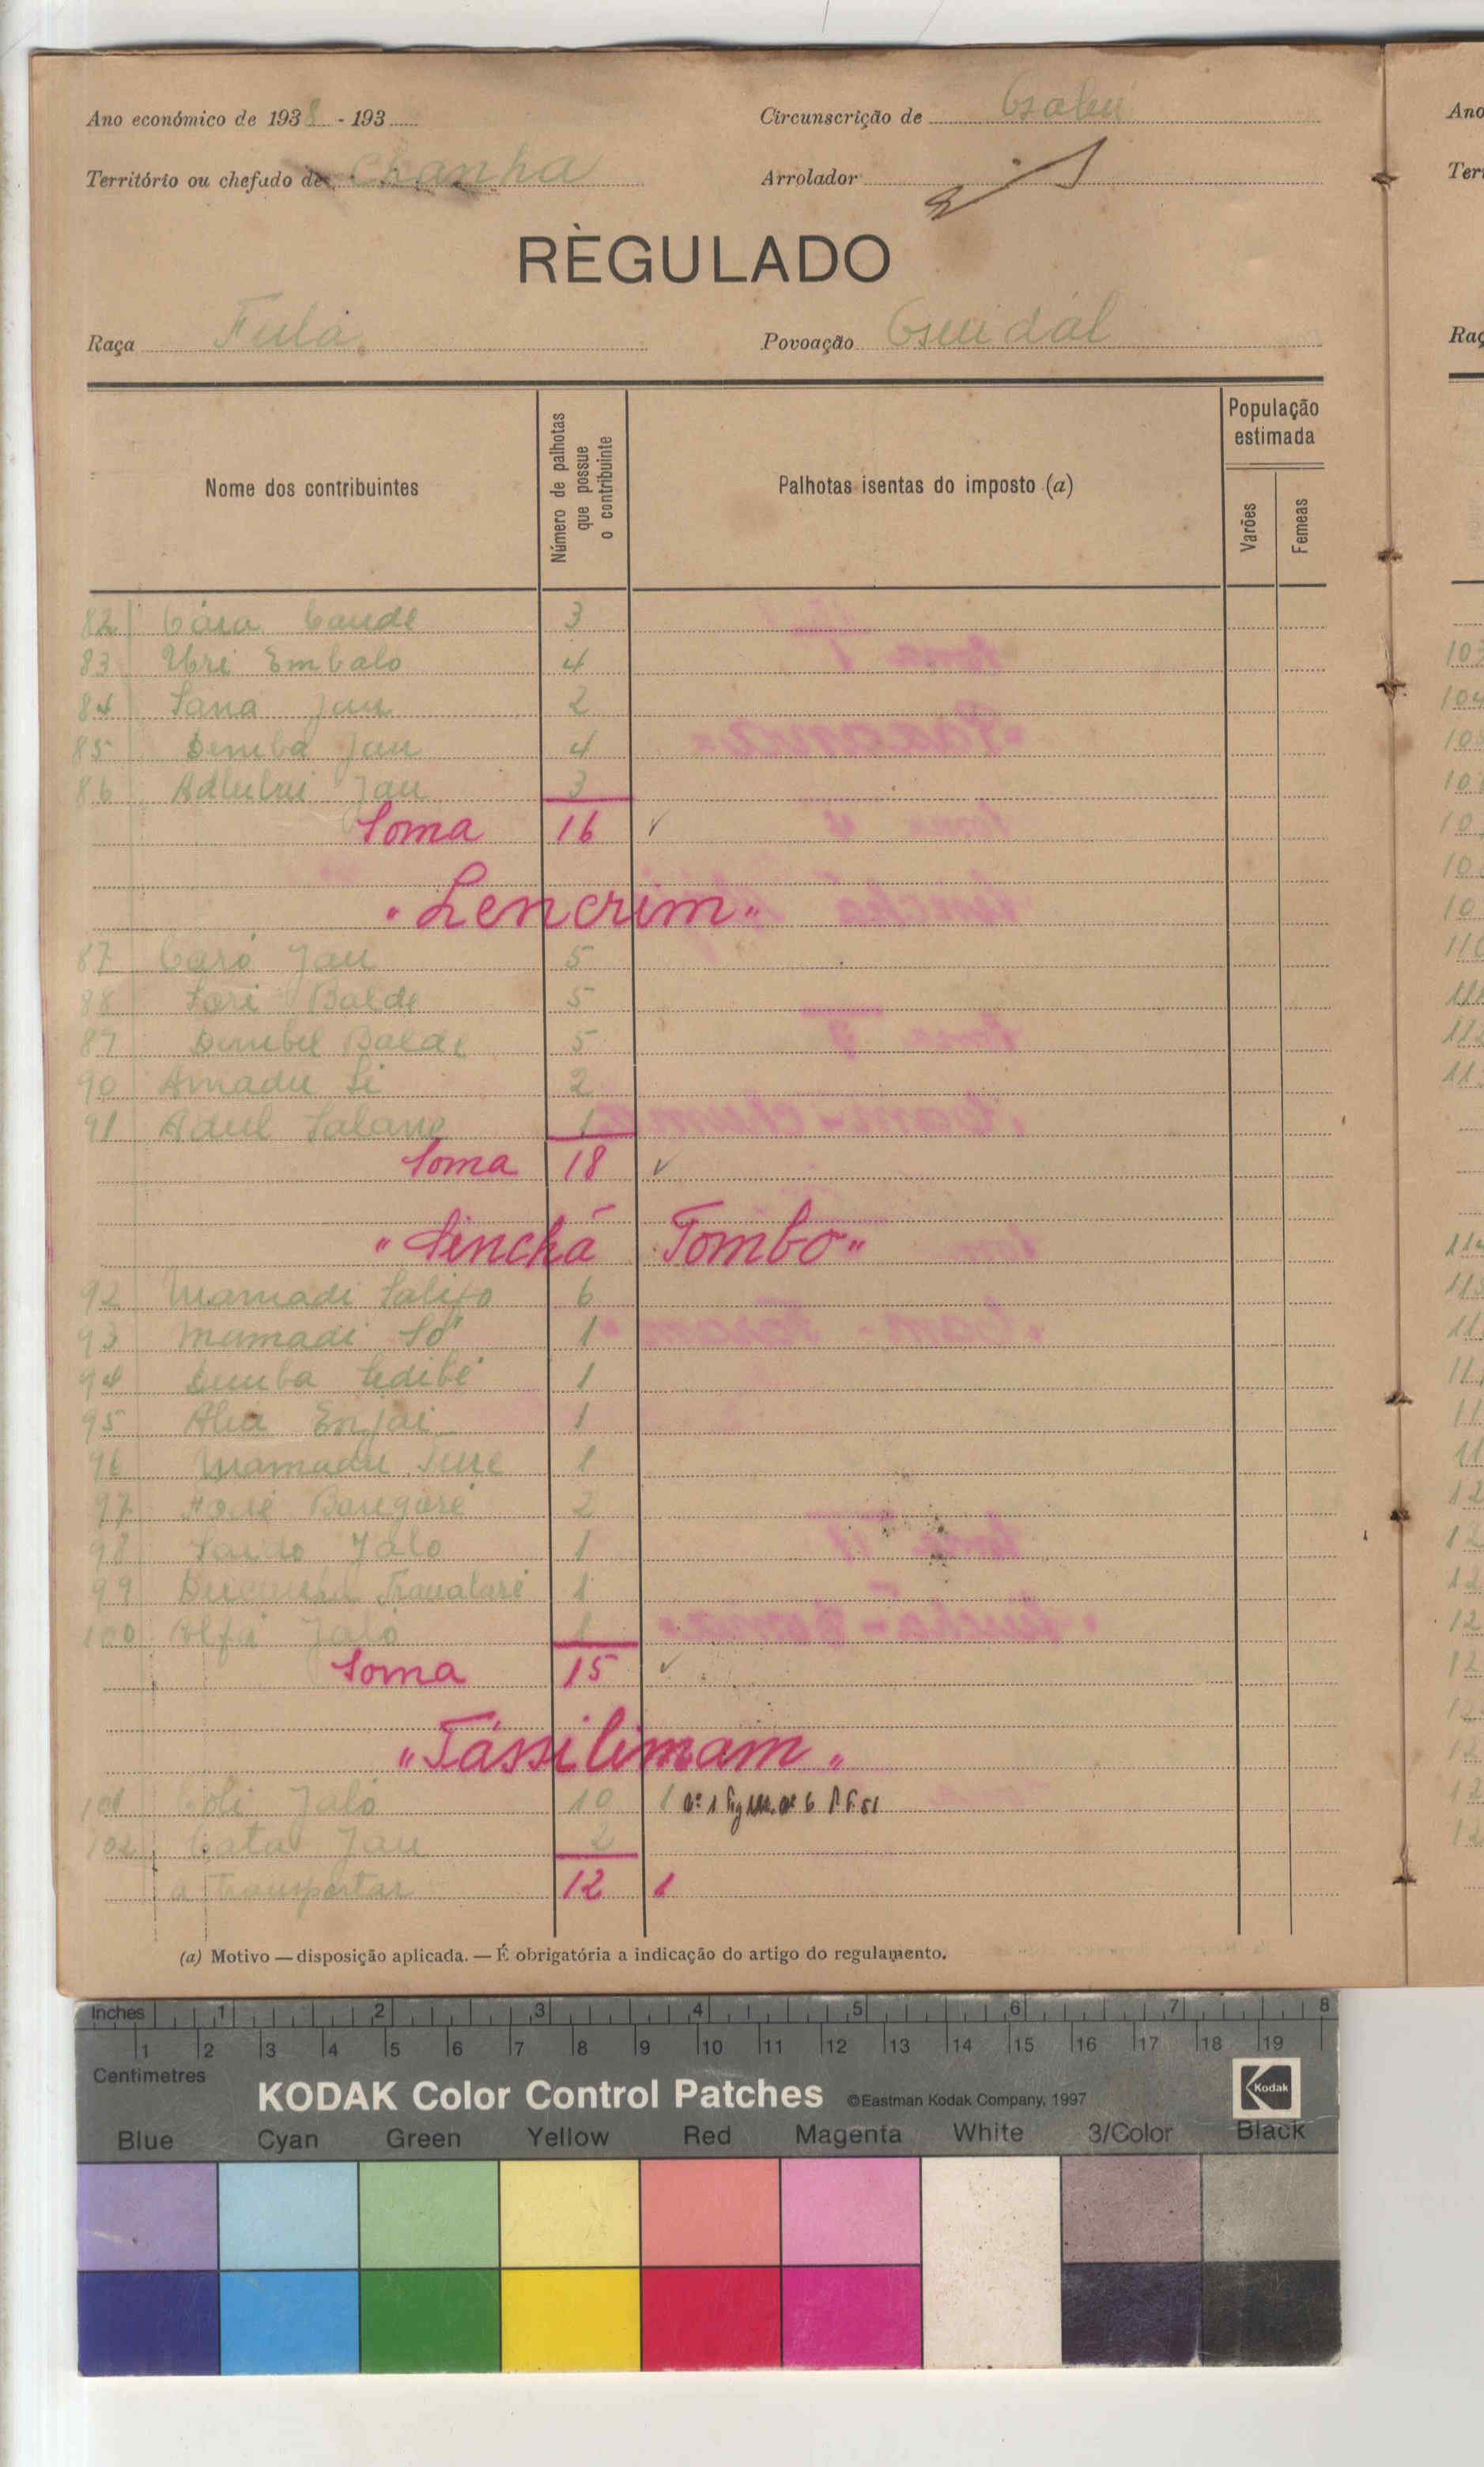 Ano económico de 1938 - 193
Circunscrição de Gabu
Território ou chefado de Chanha
Arrolador
RÈGULADO
Raça Fula
Povoação Guidál
Nome dos contribuintes
Número de palhotas que possue o contribuinte
Palhotas isentas do imposto (a)
População estimada
Varões
Femeas
82 Baude 3
83 Embalo 4
84 Sana Jau 2
85 Demba Jau 4
86 Jau 3
Soma 16 ✓
"Lencrim"
87 Jau 5
88 Sori Balde 5
89 Balde 5
90 Amadu Si 2
91 Adul 1
Soma 18 ✓
"Sinchá Tombo"
92 Mamadi Salifo 6
93 Mamadi Só 1
94 Demba Sedibé 1
95 Enjai 1
96 Mamadu 1
97 2
98 Jalo 1
99 1
100 Alfa Jaló 1
Soma 15 ✓
"Tássilimam"
101 Jaló 10 1
102 Jau 2
a transportar 12 1
(a) Motivo — disposição aplicada. — É obrigatória a indicação do artigo do regulamento.
Inches 1 2 3 4 5 6 7 8
1 2 3 4 5 6 7 8 9 10 11 12 13 14 15 16 17 18 19
Centimetres
KODAK Color Control Patches ©Eastman Kodak Company, 1997 Kodak
Blue Cyan Green Yellow Red Magenta White 3/Color Black